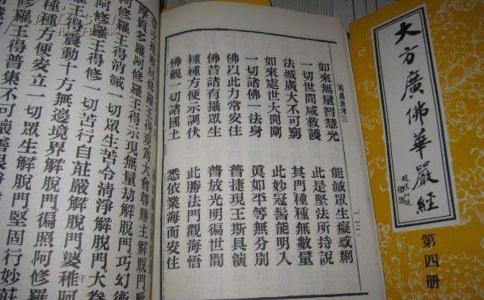 大方廣佛華嚴經
第四册
如來無量智慧光 能滅眾生癡惑網
一切世間咸救護 此是堅法所持說
法城廣大不可窮 其門種種無數量
如來處世大開闡 此妙冠髻能明入
一切諸佛一法身 真如平等無分別
佛以此力常安住 普捷現王斯具演
佛昔諸有攝眾生 普放光明徧世間
種種方便示調伏 此勝法門觀海悟
佛觀一切諸國土 悉依業海而安住
羅睺阿修羅王得現為大會尊勝主解脫門
阿修羅王得示現無量劫解脫門巧幻術
修羅王得消滅一切眾生苦令清淨解脫門大
羅王得修一切苦行自莊嚴解脫門婆稚阿
王得震動十方無邊境界解脫門徧照阿修羅
種種方便安立一切眾生解脫門堅固行妙莊
羅王得普集不可壞善根